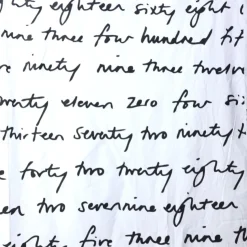 hty eighteen sixty eight
nine three four hundred fif
ninety nine three twelv
wenty eleven zero four si
thirteen seventy two ninety
forty two twenty eighty
en two severnine eighteen
eighty five three nine th